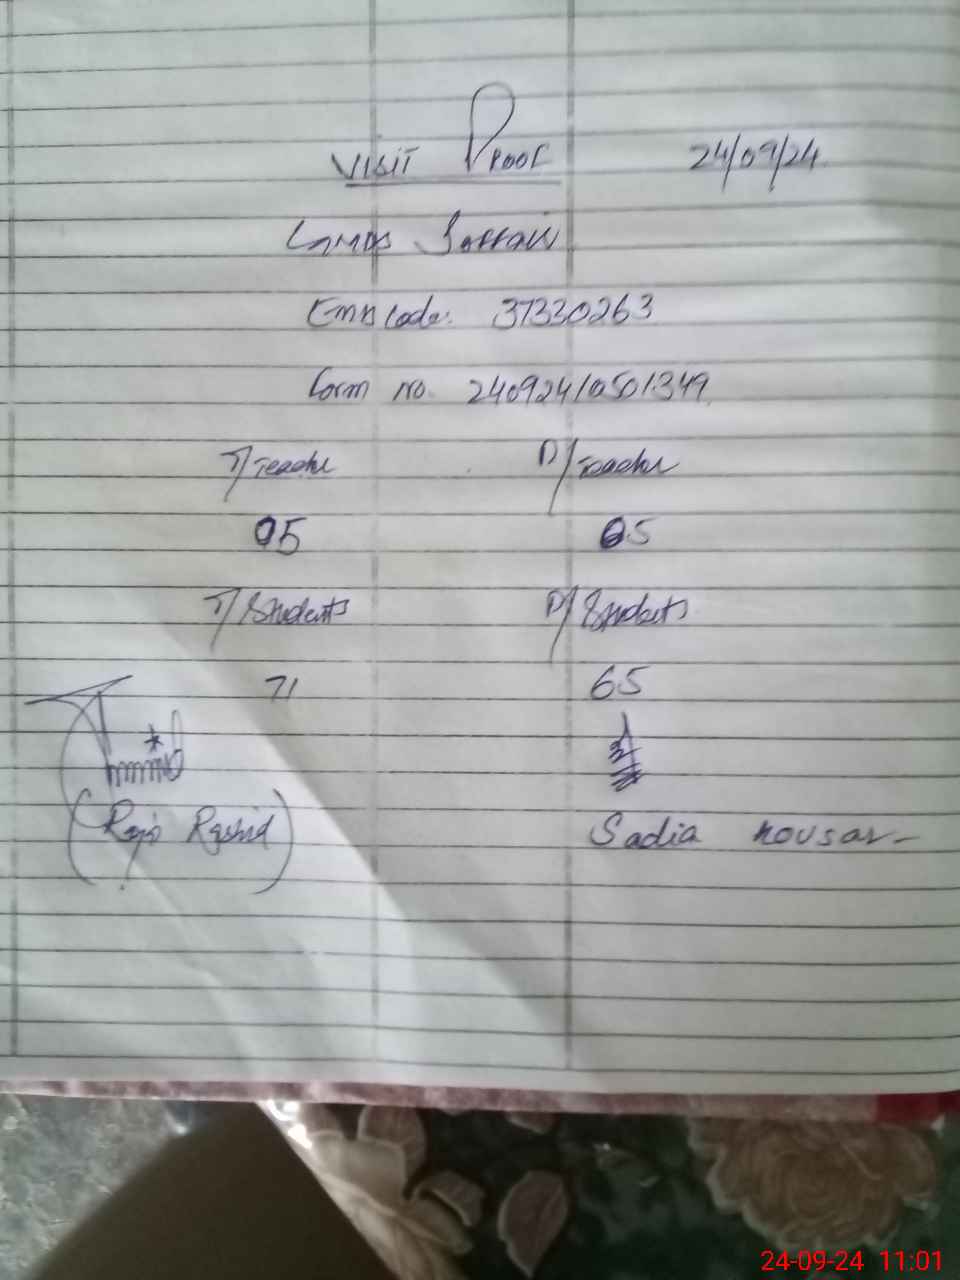 VISIT PROOF 24/09/24
Emis Code: 37330263
Form no. 24092410501349
T/Teacher P/Teacher
05 05
T/Students P/Students
71 65
Rashid) Sadia Kousar
24-09-24 11:01